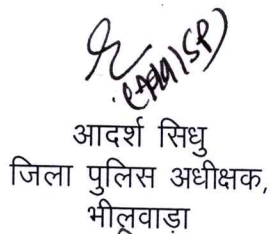 आदर्श सिधु
जिला पुलिस अधीक्षक,
भीलवाड़ा